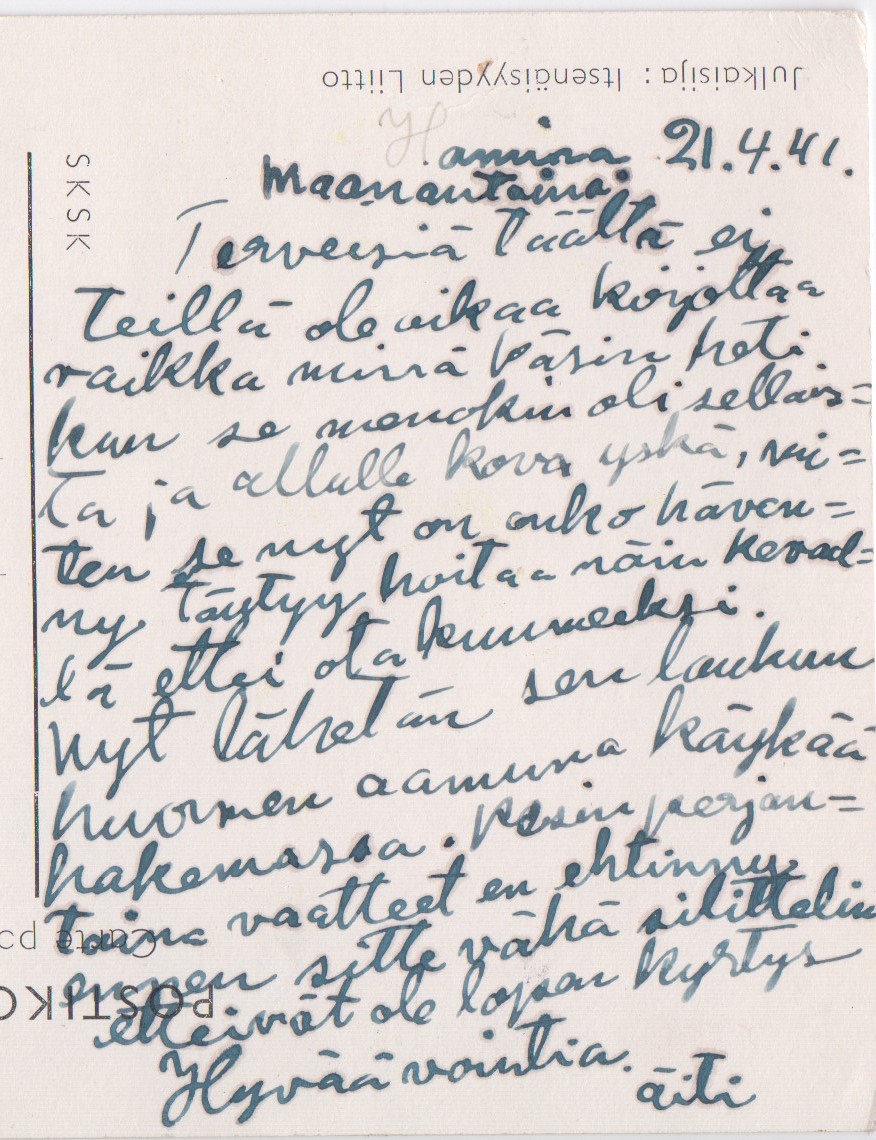 Julkaisija: Itsenäisyyden Liitto
SKSK
Hamina 21.4.41.
Maanantaina.
Terveisiä täältä ei
teillä ole aikaa kirjottaa
vaikka minä käsin heti
kun se menokin oli sellais=
ta ja allulle kova yskä, mi=
ten se nyt on onko häven=
ny. Täytyy hoitaa näin keväl=
lä ettei ota kuumeeksi.
Nyt lähetän sen laukun
huomen aamuna käykää
hakemassa. Pesin perjan=
taina vaatteet en ehtinny
ennen sitte vähä silittelin
etteivät ole lopen
Hyvää vointia.
äiti
Carte po
POSTIKO